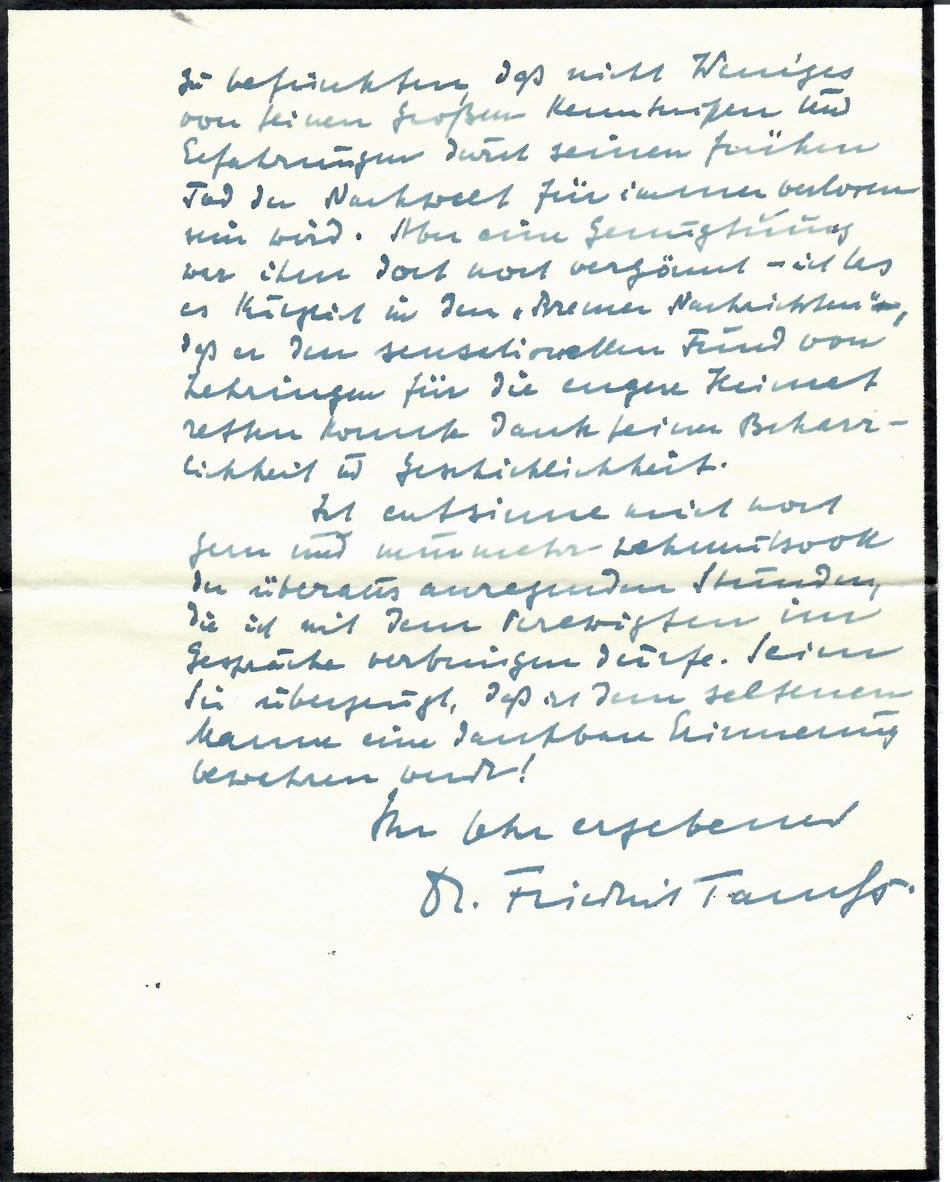 zu befürchten, daß nicht Weniges
von seinen großen Kenntnißen und
Erfahrungen durch seinen frühen
Tod der Nachwelt für immer verloren
sein wird. Aber eine Genugtuung
war ihm doch noch vergönnt – ich las
es kürzlich in den „Bremer Nachrichten",
daß er den sensationellen Fund von
Lehringen für die engere Heimat
retten konnte dank seiner Beharr-
lichkeit ud Geschicklichkeit.
Ich entsinne mich noch
gern und nunmehr wehmutsvoll
der überaus anregenden Stunden,
die ich mit dem Verewigten im
Gespräche verbringen durfte. Seien
Sie überzeugt, daß ich dem seltenen
Manne eine dankbare Erinnerung
bewahren werde!
Ihr sehr ergebener
Dr. Friedrich